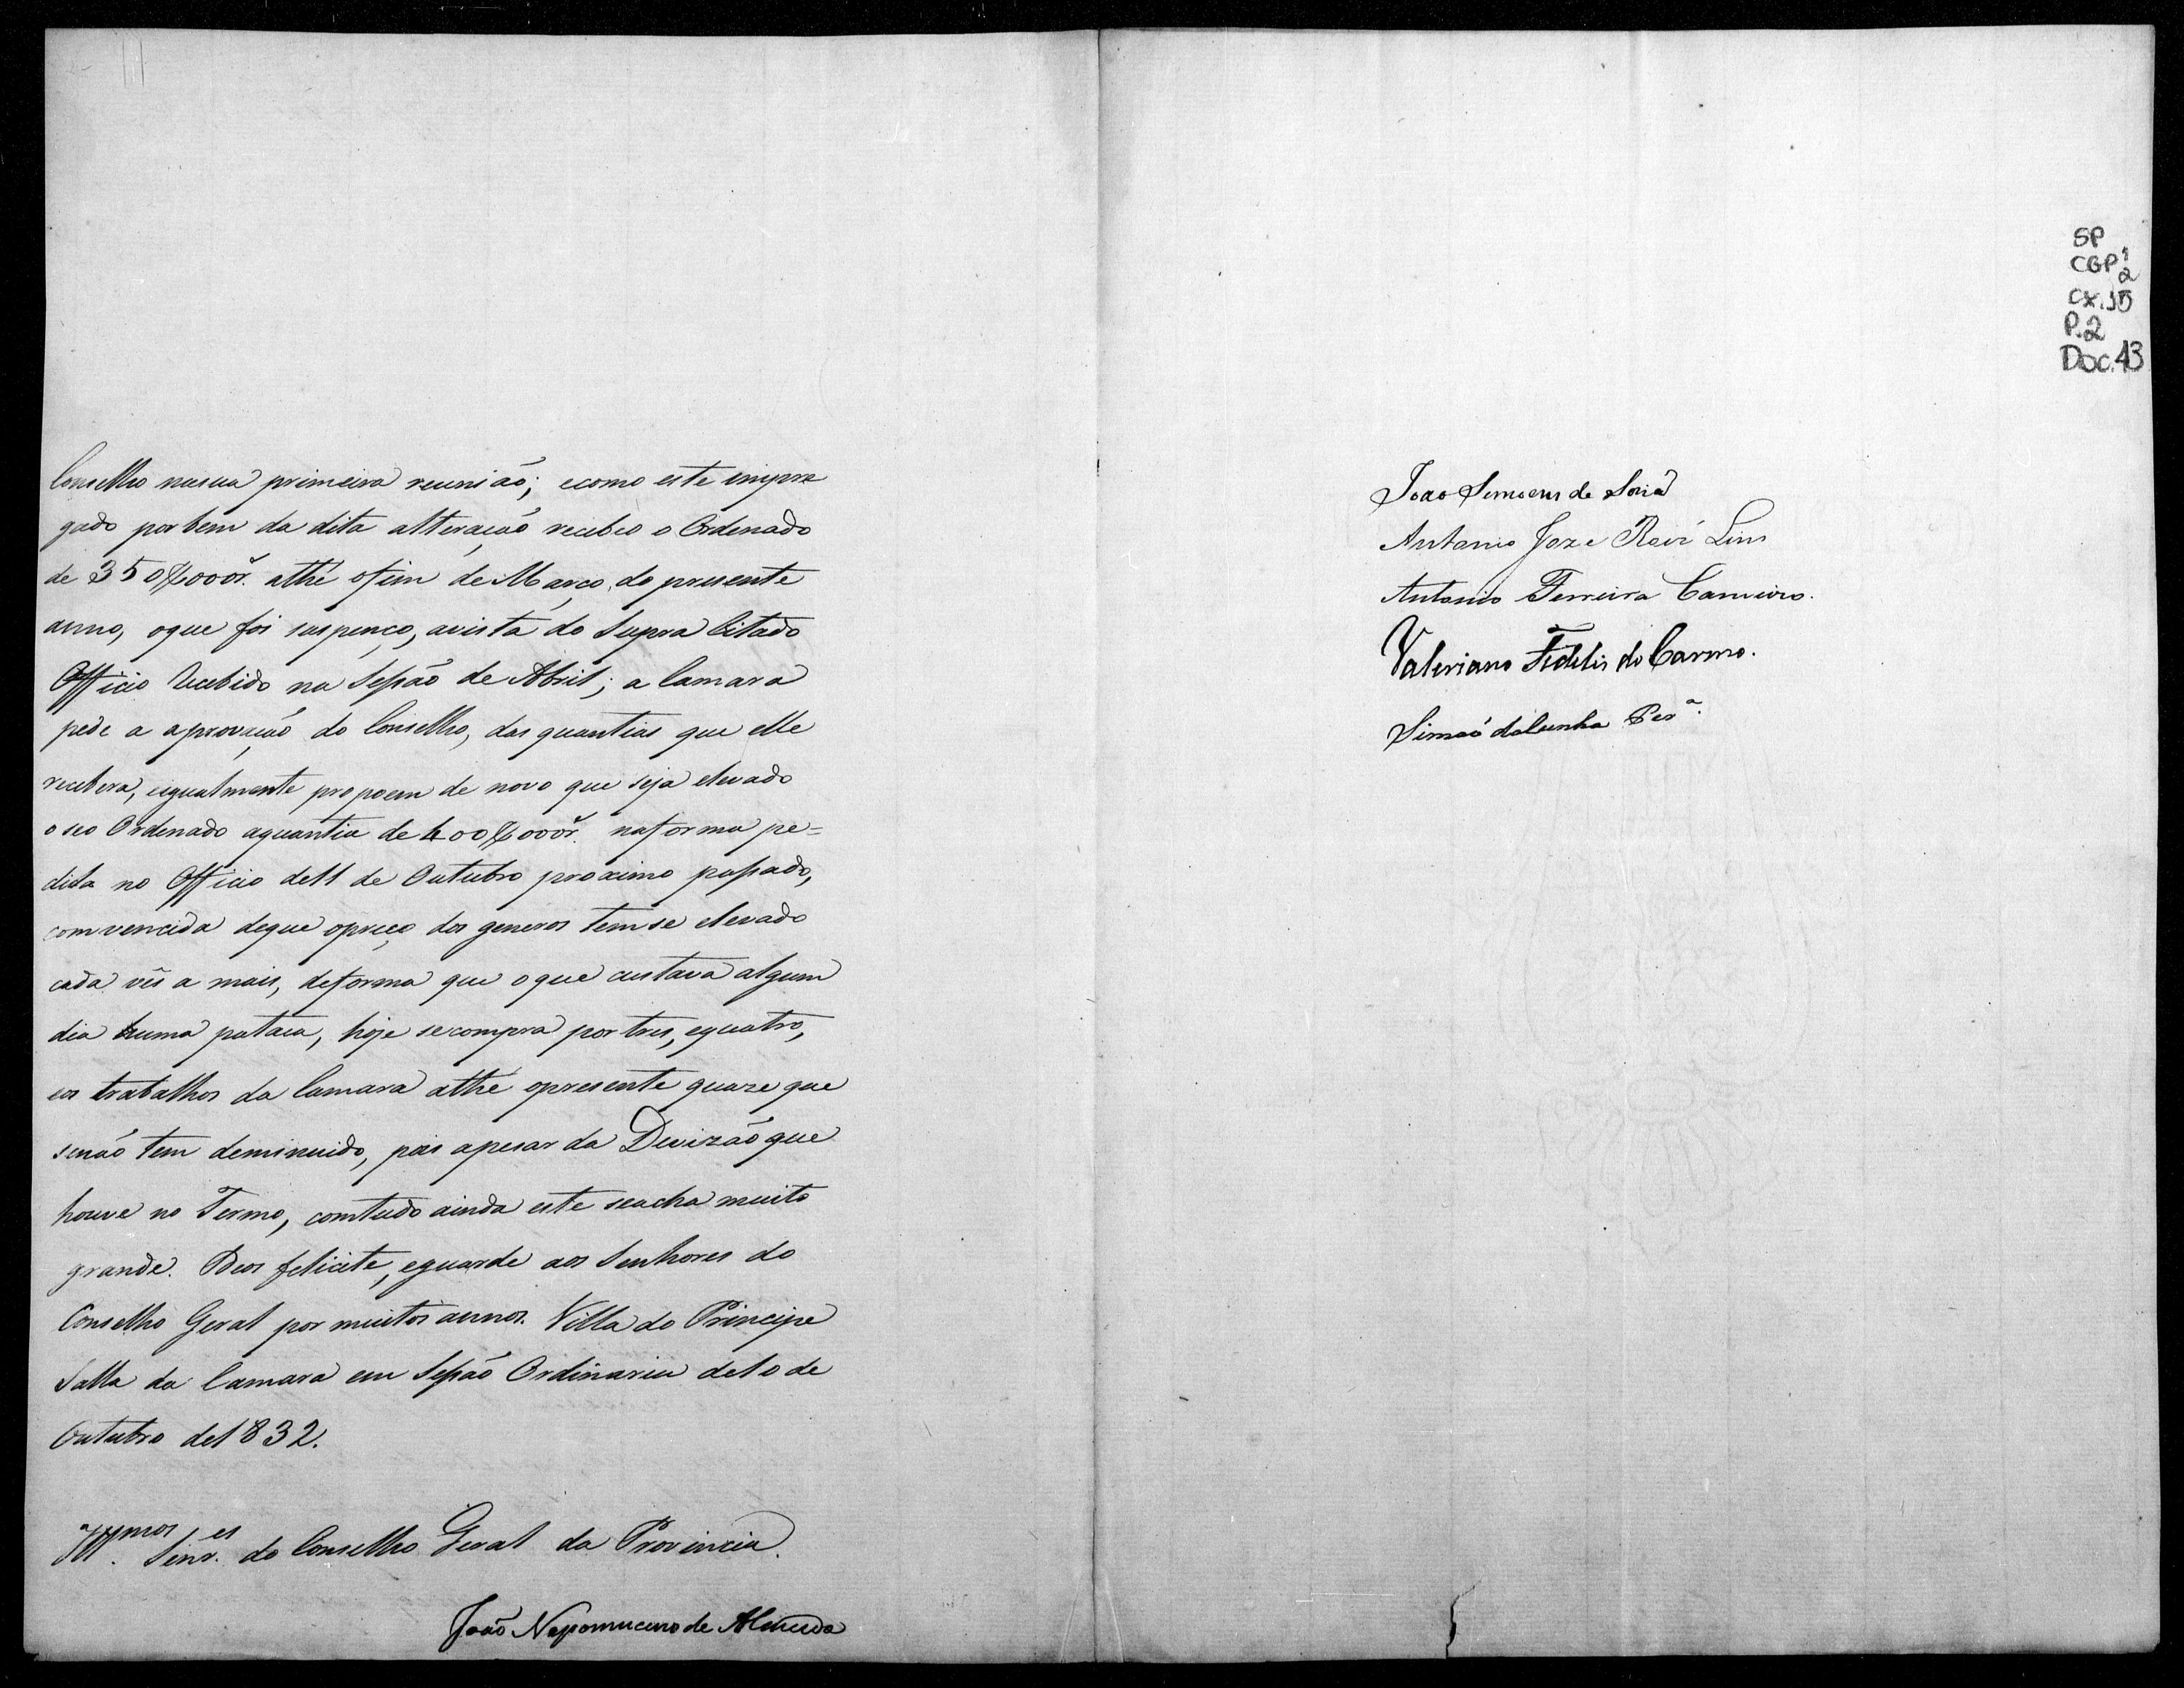 Conselho nasua primeira reunião; ecomo este impre
gado portem da dita alteração recebeo o Ordenado
de 350$000r̃. athé ofim de Março do presente
anno, oque foi suspenço, avista do Supra Citado
Officio Recebido na Seſsão de Abril; a Camara
pede a aprovação do Conselho, das quantias que elle
recebera, eigualmente propoem de novo que seja elevado
o seo Ordenado aquantia de 400$000r̃. naforma pe=
dida no Officio de11 de Outubro proximo paſsado,
comvencida deque opreço dos generos temse elevado
cada vês a mais, deforma que oque custava algum
dia huma pataca, hoje secompra por tres, equatro,
eos trabalhos da Camara athé opresente quaze que
senão tem deminuido, pois apesar da Divizão que
houve no Termo, comtudo ainda este seacha muito
grande. Deos felicite, eguarde aos Senhores do
Conselho Geral por muitos annos. Villa do Principe
Salla da Camara em Seſsão Ordinaria de10 de
Outubro de1832.
Illmos. Senres. do Conselho Geral da Provincia.
João Nepomuceno de Almeida
SP
CGP 1
2
CX.15
P.2
Doc.43
Joao Simoens de
Antonio Joze Lins
Antonio Ferreira Carneiro.
Valeriano Fidelis do Carmo.
Simaó daCunha Per.ª